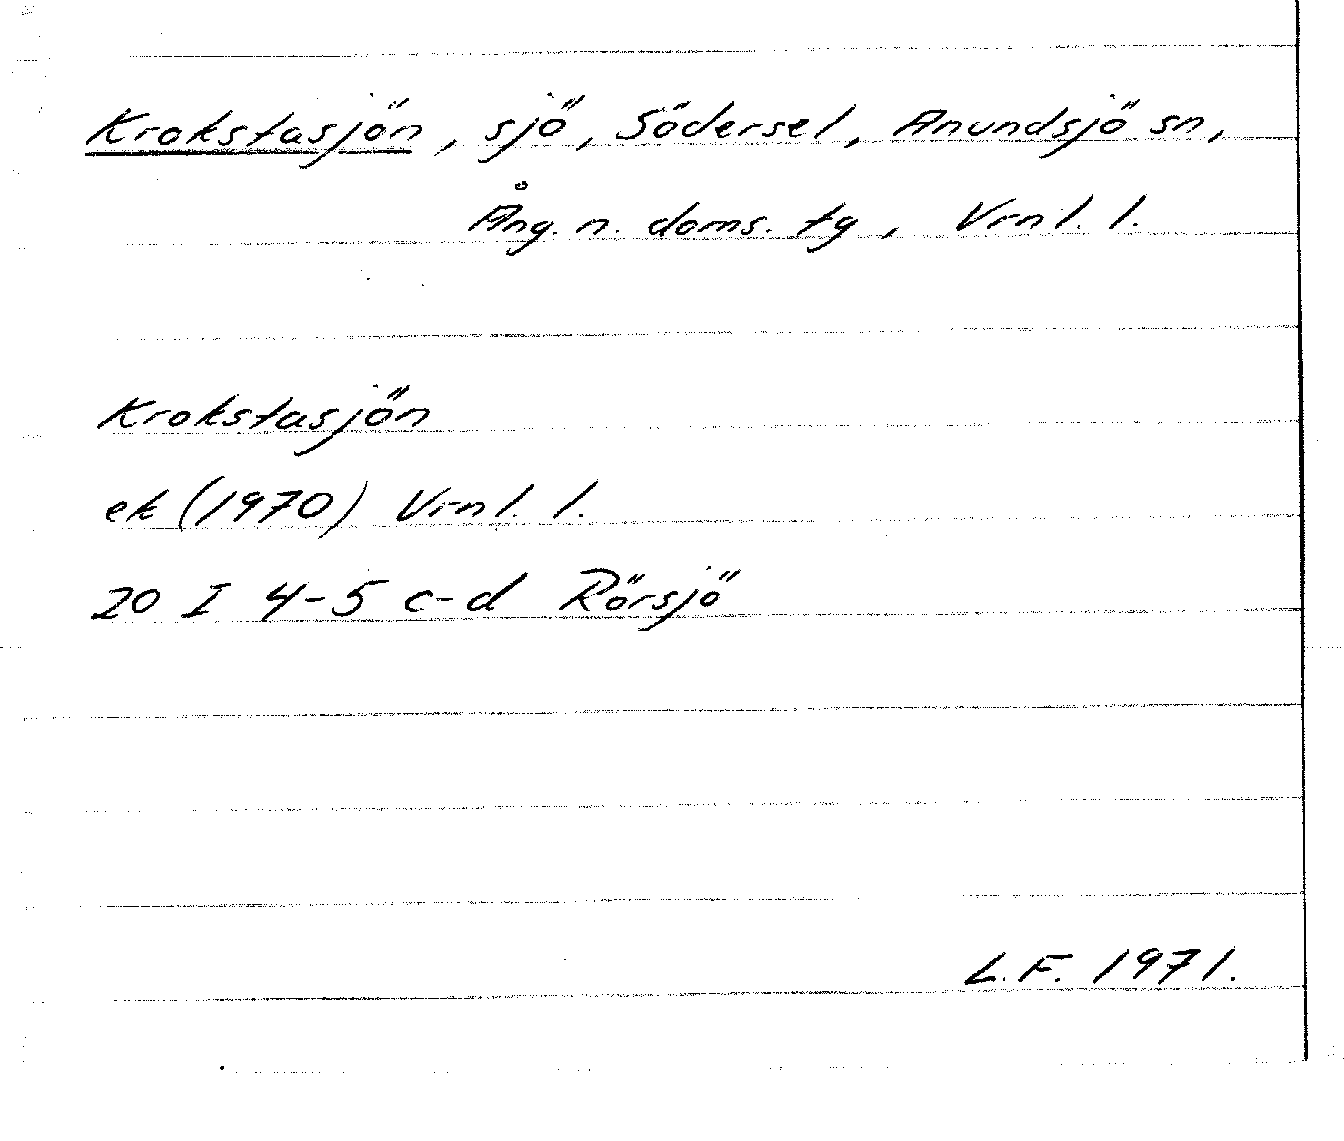 Krokstasjön, sjö, Södersel, Anundsjö sn,
Ång. n. doms. tg, Vrnl. l.
Krokstasjön
ek (1970) Vrnl. l.
20 I 4-5 c-d Rörsjö
L.F. 1971.